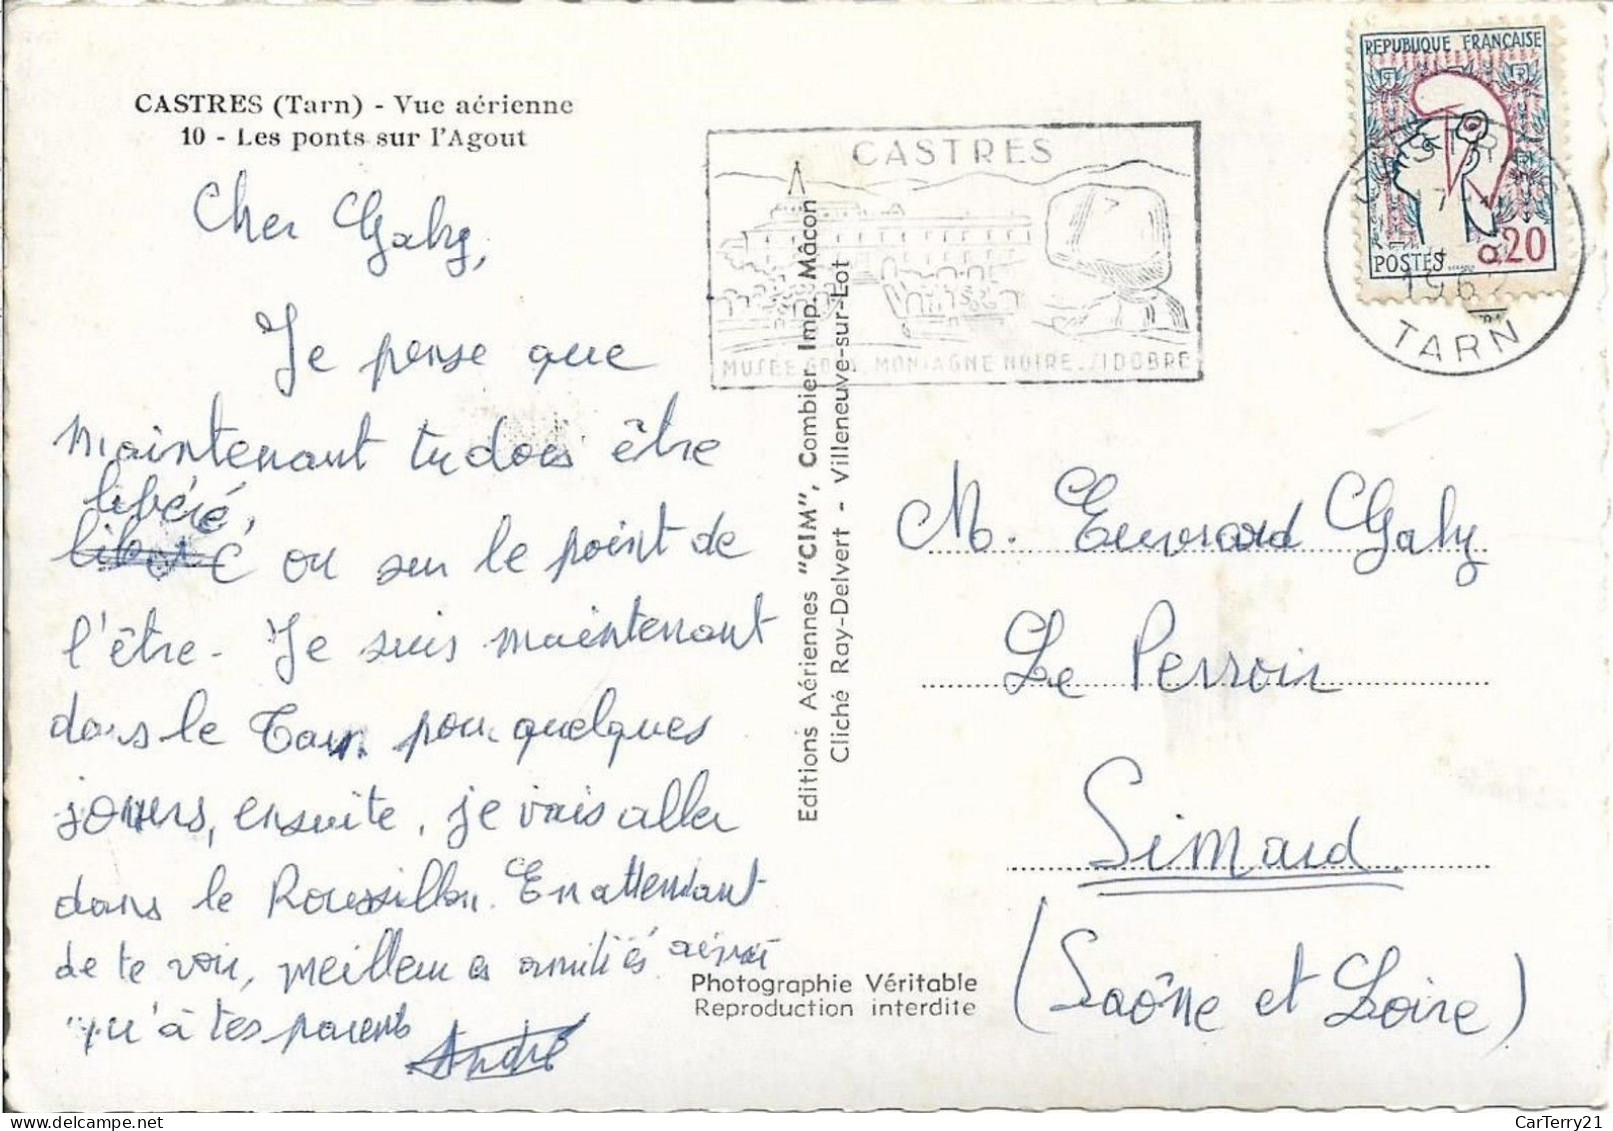 CASTRES (Tarn) - Vue aérienne
10 - Les ponts sur l'Agout
Cher Gaby,
Je pense que
maintenant tu dois être
libéré,
ou sur le point de
l'être. Je suis maintenant
dans le Tarn pour quelques
jours, ensuite, je vais aller
dans le Roussillon. En attendant
de te voir, meilleures amitiés ainsi
qu'à tes parents
André
Editions Aériennes "CIM", Combier Imp. Mâcon
Cliché Ray-Delvert - Villeneuve-sur-Lot
Photographie Véritable
Reproduction interdite
CASTRES
MUSÉE GOYA, MONTAGNE NOIRE, SIDOBRE
REPUBLIQUE FRANÇAISE
POSTES 0,20
CASTRES
17
1962
TARN
M. Gaby
Le Perroir
Simard
(Saône et Loire)
CarTerry21